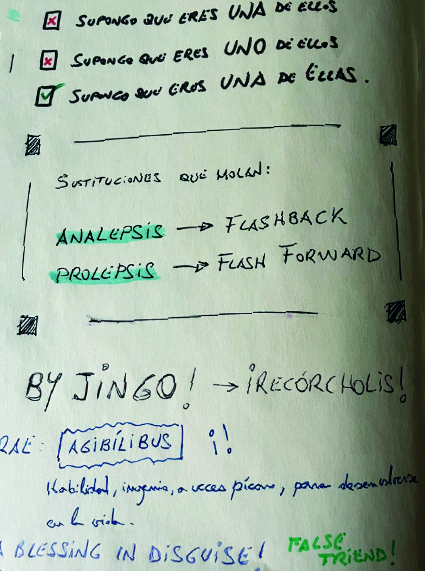 SUPONGO QUE ERES UNA DE ELLOS
SUPONGO QUE ERES UNO DE ELLOS
SUPONGO QUE ERES UNA DE ELLAS.
SUSTITUCIONES QUE MOLAN:
ANALEPSIS → FLASHBACK
PROLEPSIS → FLASH FORWARD
BY JINGO! → ¡RECÓRCHOLIS!
RAE: AGIBÍLIBUS ¡!
Habilidad, ingenio, a veces pícaro, para desenvolverse
en la vida.
A BLESSING IN DISGUISE! FALSE
FRIEND!